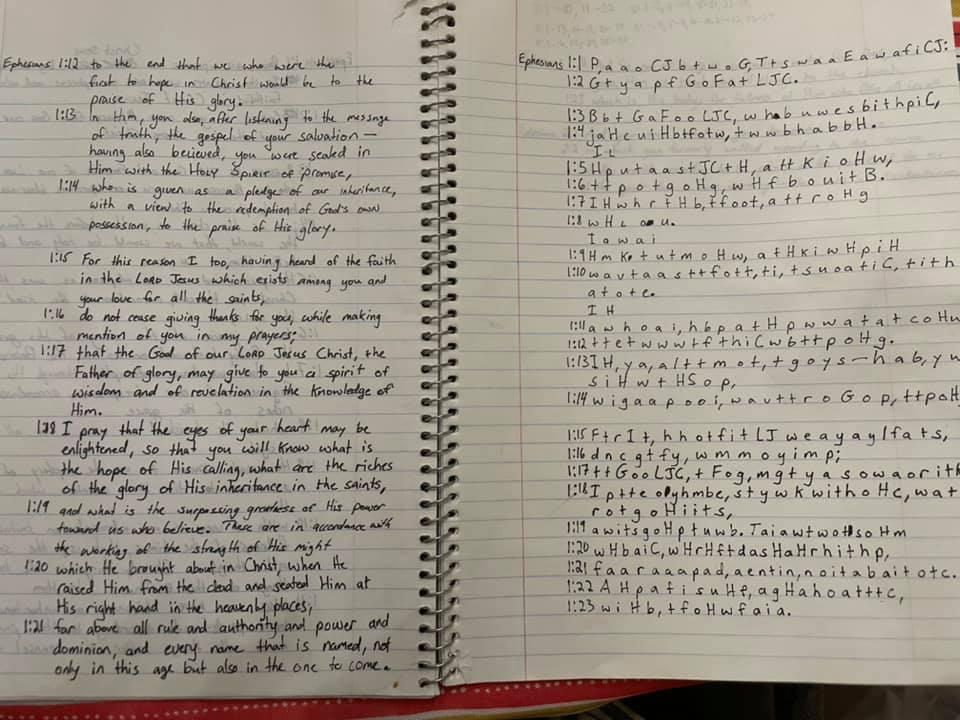 Ephesians 1:12 to the end that we who were the
first to hope in Christ would be to the
praise of His glory.
1:13 In Him, you also, after listening to the message
of truth, the gospel of your salvation —
having also believed, you were sealed in
Him with the HOLY SPIRIT of promise,
1:14 who is given as a pledge of our inheritance,
with a view to the redemption of God's own
possession, to the praise of His glory.
1:15 For this reason I too, having heard of the faith
in the LORD JESUS which exists among you and
your love for all the saints,
1:16 do not cease giving thanks for you, while making
mention of you in my prayers;
1:17 that the God of our LORD JESUS CHRIST, the
Father of glory, may give to you a spirit of
wisdom and of revelation in the knowledge of
Him.
1:18 I pray that the eyes of your heart may be
enlightened, so that you will know what is
the hope of His calling, what are the riches
of the glory of His inheritance in the saints,
1:19 and what is the surpassing greatness of His power
toward us who believe. These are in accordance with
the working of the strength of His might
1:20 which He brought about in Christ, when He
raised Him from the dead and seated Him at
His right hand in the heavenly places,
1:21 far above all rule and authority and power and
dominion, and every name that is named, not
only in this age but also in the one to come.
Ephesians 1:1 P, a a o CJ b t w o G, T t s w a a E a w a f i CJ:
1:2 G t y a p f G o F a t L J C.
1:3 B b t G a F o o L J C, w h a b u w e s b i t h p i C,
1:4 j a H c u i H b t f o t w, t w w b h a b b H.
I L
1:5 H p u t a a s t J C t H, a t t K i o H w,
1:6 t t p o t g o H g, w H f b o u i t B.
1:7 I H w h r t H b, t f o o t, a t t r o H g
1:8 w H L o u.
I a w a i
1:9 H m K t u t m o H w, a t H k i w H p i H
1:10 w a v t a a s t t f o t t, t i, t s u o a t i C, t i t h
a t o t e.
I H
1:11 a w h o a i, h b p a t H p w w a t a t c o H w
1:12 t t e t w w w t f t h i C w b t t p o H g.
1:13 I H, y a, a l t t m o t, t g o y s — h a b, y w
s i H w t H S o p,
1:14 w i g a a p o o i, w a v t t r o G o p, t t p o H
1:15 F t r I t, h h o t f i t L J w e a y a y l f a t s,
1:16 d n c g t f y, w m m o y i m p;
1:17 t t G o o L J C, t F o g, m g t y a s o w a o r i t k
1:18 I p t t e o y h m b e, s t y w k w i t h o H c, w a t
r o t g o H i i t s,
1:19 a w i t s g o H p t u w b. T a i a w t w o t s o H m
1:20 w H b a i C, w H r H f t d a s H a H r h i t h p,
1:21 f a a r a a a p a d, a e n t i n, n o i t a b a i t o t c.
1:22 A H p a t i s u H f, a g H a h o a t t t c,
1:23 w i H b, t f o H w f a i a.